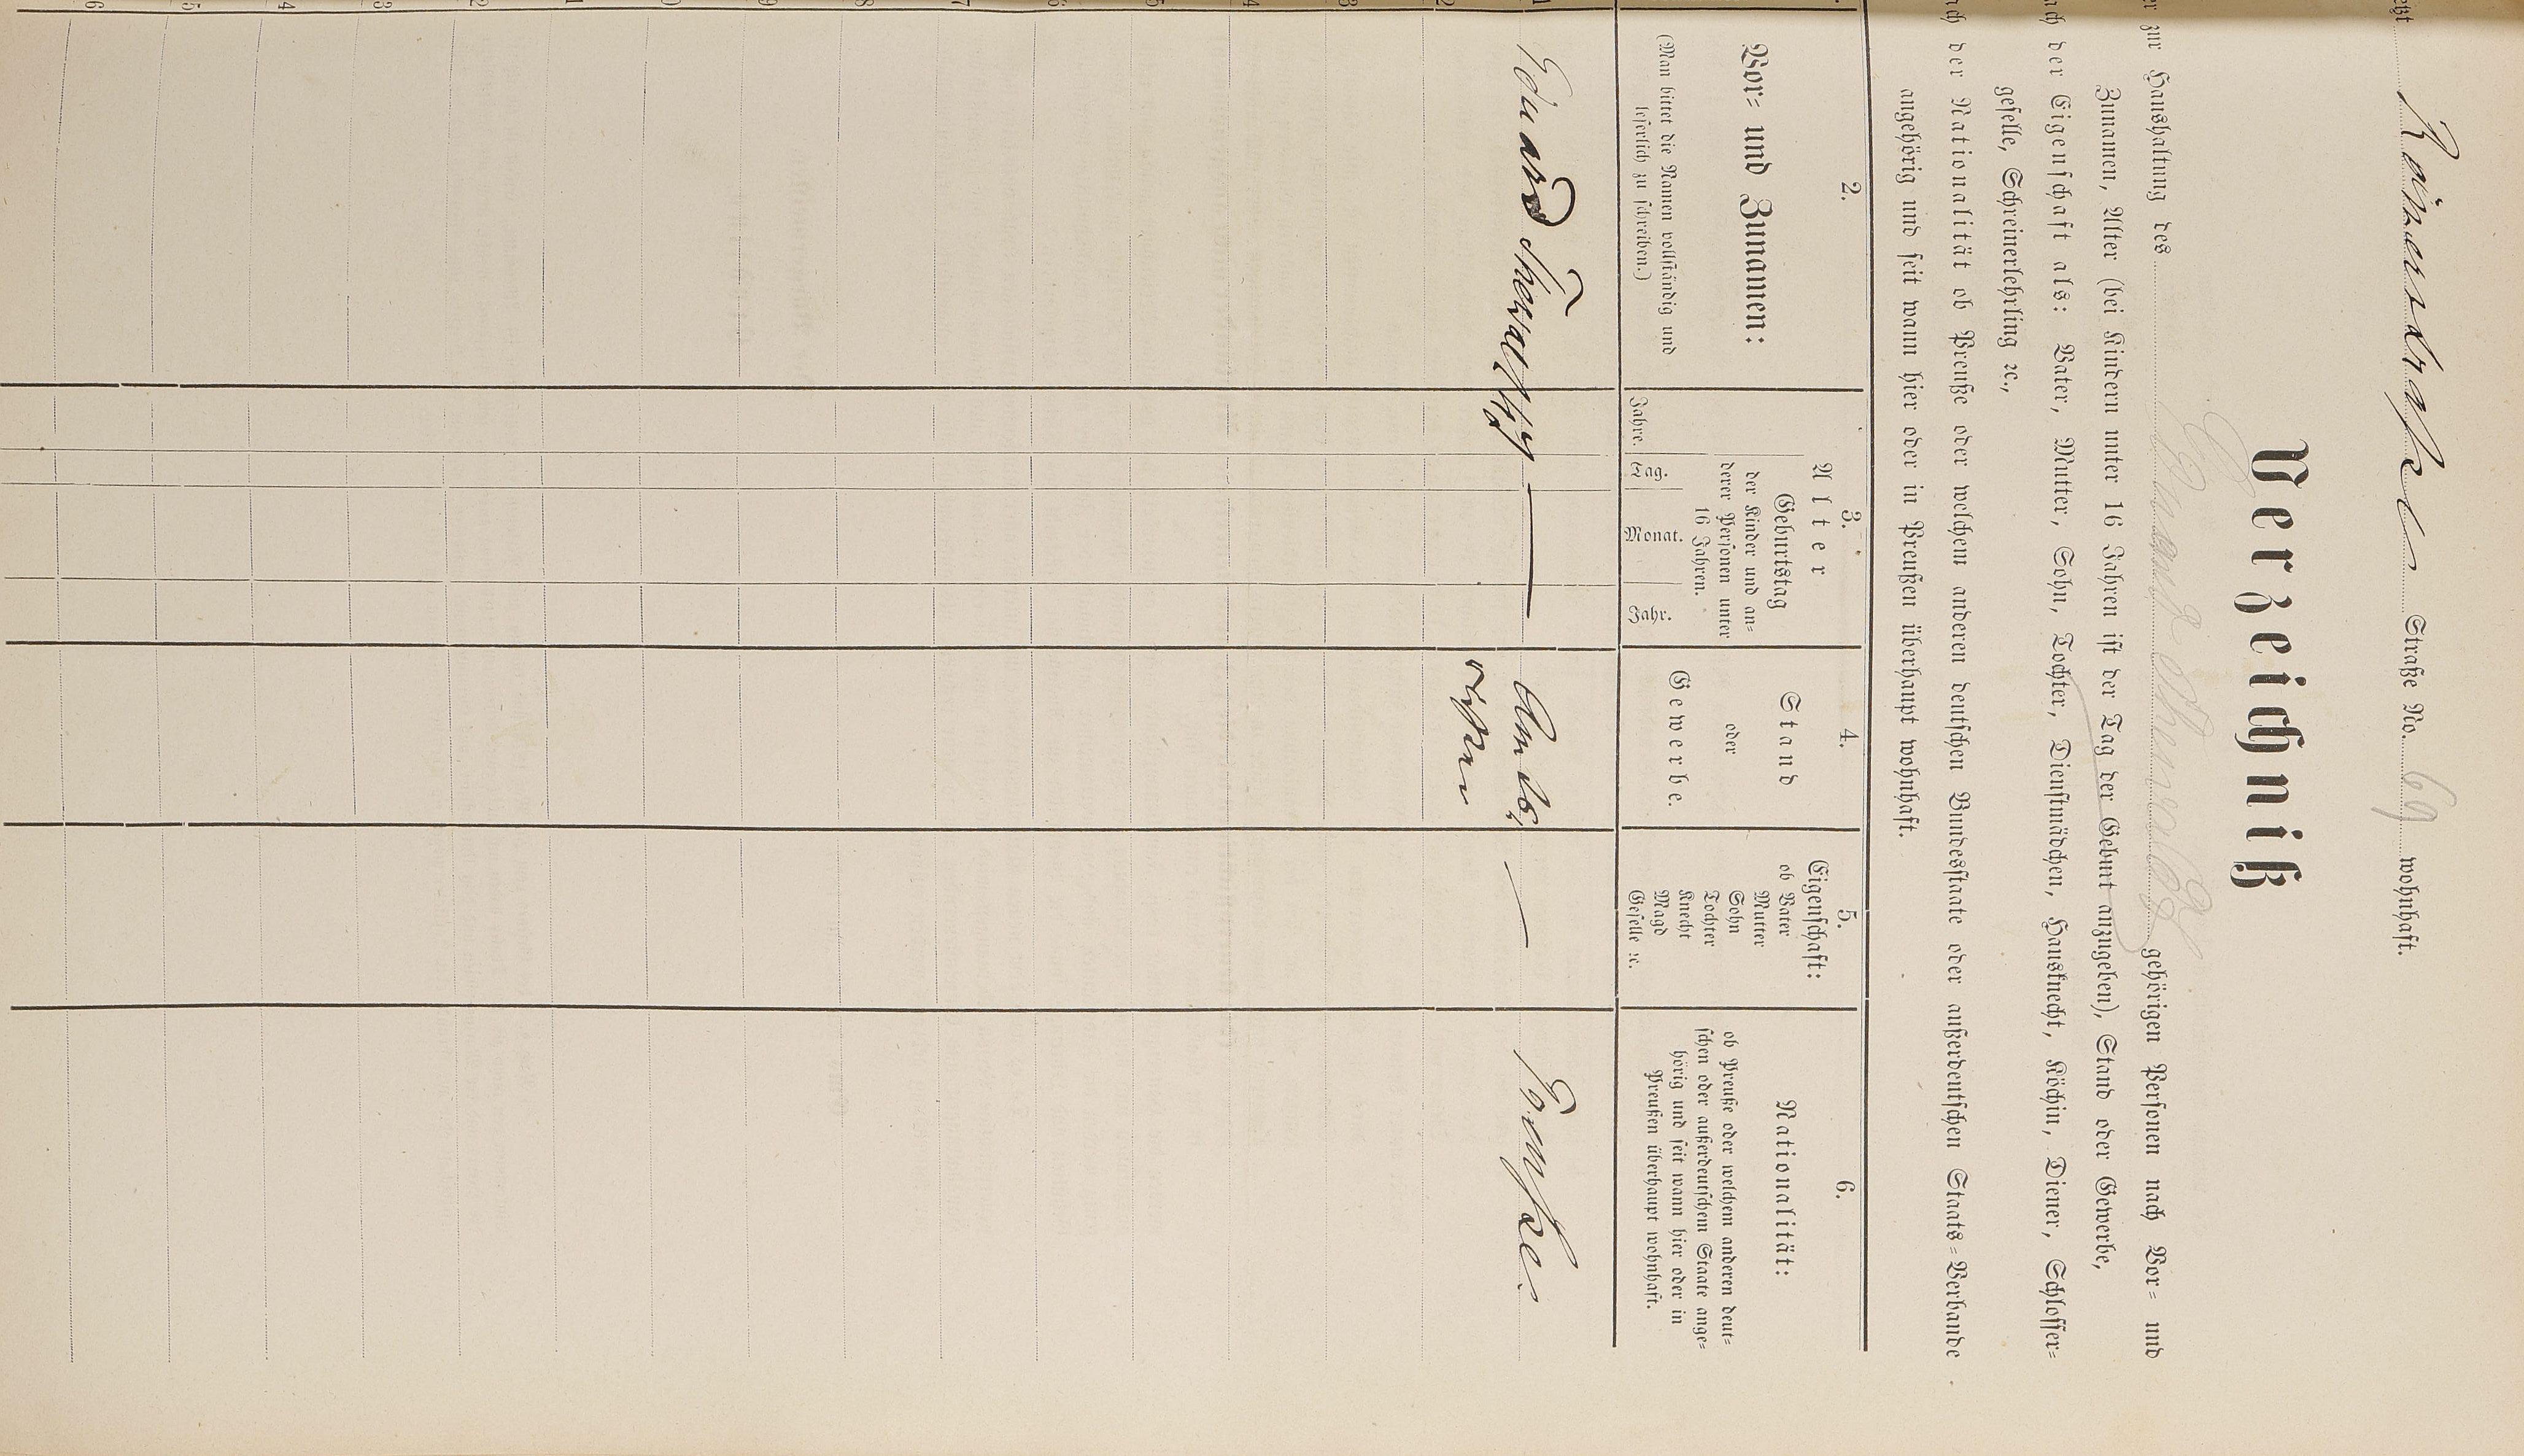 etzt Kaiserstraße Straße No. 69 wohnhaft.
Verzeichniß
er zur Haushaltung des Eduard gehörigen Personen nach Vor- und
Zunamen, Alter (bei Kindern unter 16 Jahren ist der Tag der Geburt anzugeben), Stand oder Gewerbe,
ach der Eigenschaft als: Vater, Mutter, Sohn, Tochter, Dienstmädchen, Hausknecht, Köchin, Diener, Schlosser-
geselle, Schreinerlehrling ꝛc.,
ach der Nationalität ob Preuße oder welchem anderen deutschen Bundesstaate oder außerdeutschen Staats-Verbande
angehörig und seit wann hier oder in Preußen überhaupt wohnhaft.
2.
Vor- und Zunamen:
(Man bittet die Namen vollständig und
leserlich zu schreiben.)
3.
Alter
Jahre.
Geburtstag
der Kinder und an-
derer Personen unter
16 Jahren.
Tag. Monat. Jahr.
4.
Stand
oder
Gewerbe.
5.
Eigenschaft:
ob Vater
Mutter
Sohn
Tochter
Knecht
Magd
Geselle ꝛc.
6.
Nationalität:
ob Preuße oder welchem anderen deut-
schen oder außerdeutschem Staate ange-
hörig und seit wann hier oder in
Preußen überhaupt wohnhaft.
1 Eduard — — Preuße
2
3
4
5
6
7
8
9
0
1
2
3
4
5
6